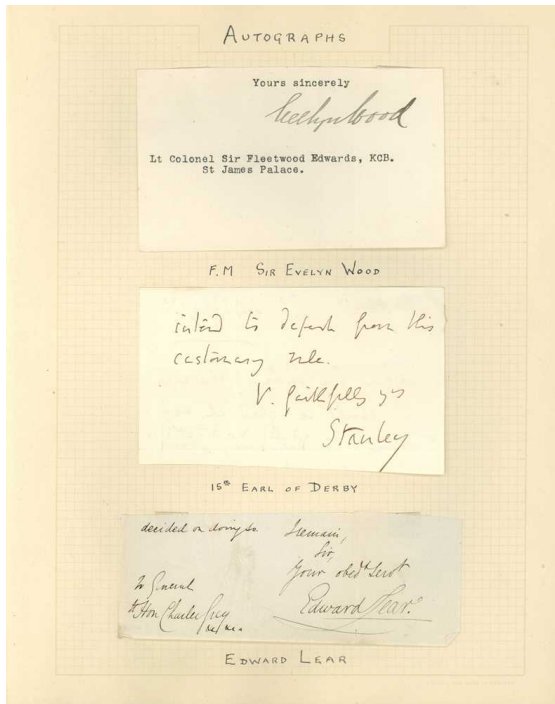 AUTOGRAPHS
Yours sincerely
Evelyn Wood
Lt Colonel Sir Fleetwood Edwards, KCB.
St James Palace.
F.M SIR EVELYN WOOD
intend to depart from this
customary rule.
V. faithfully yrs
Stanley
15th EARL OF DERBY
decided on doing so.
I remain,
Sir,
Your obedt Servt
Edward Lear.
General
Hon Charles Grey
EDWARD LEAR